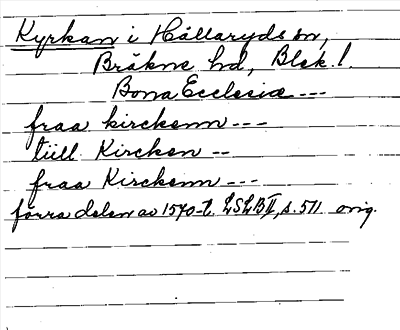 Kyrkan i Hällaryds sn,
Bräkne hd, Blek. l.
Bona Ecclesiæ ---
fraa kirckenn ---
tiill Kircken --
fraa Kirckenn ---
förra delen av 1570-t. LSLBII, s. 571 orig.